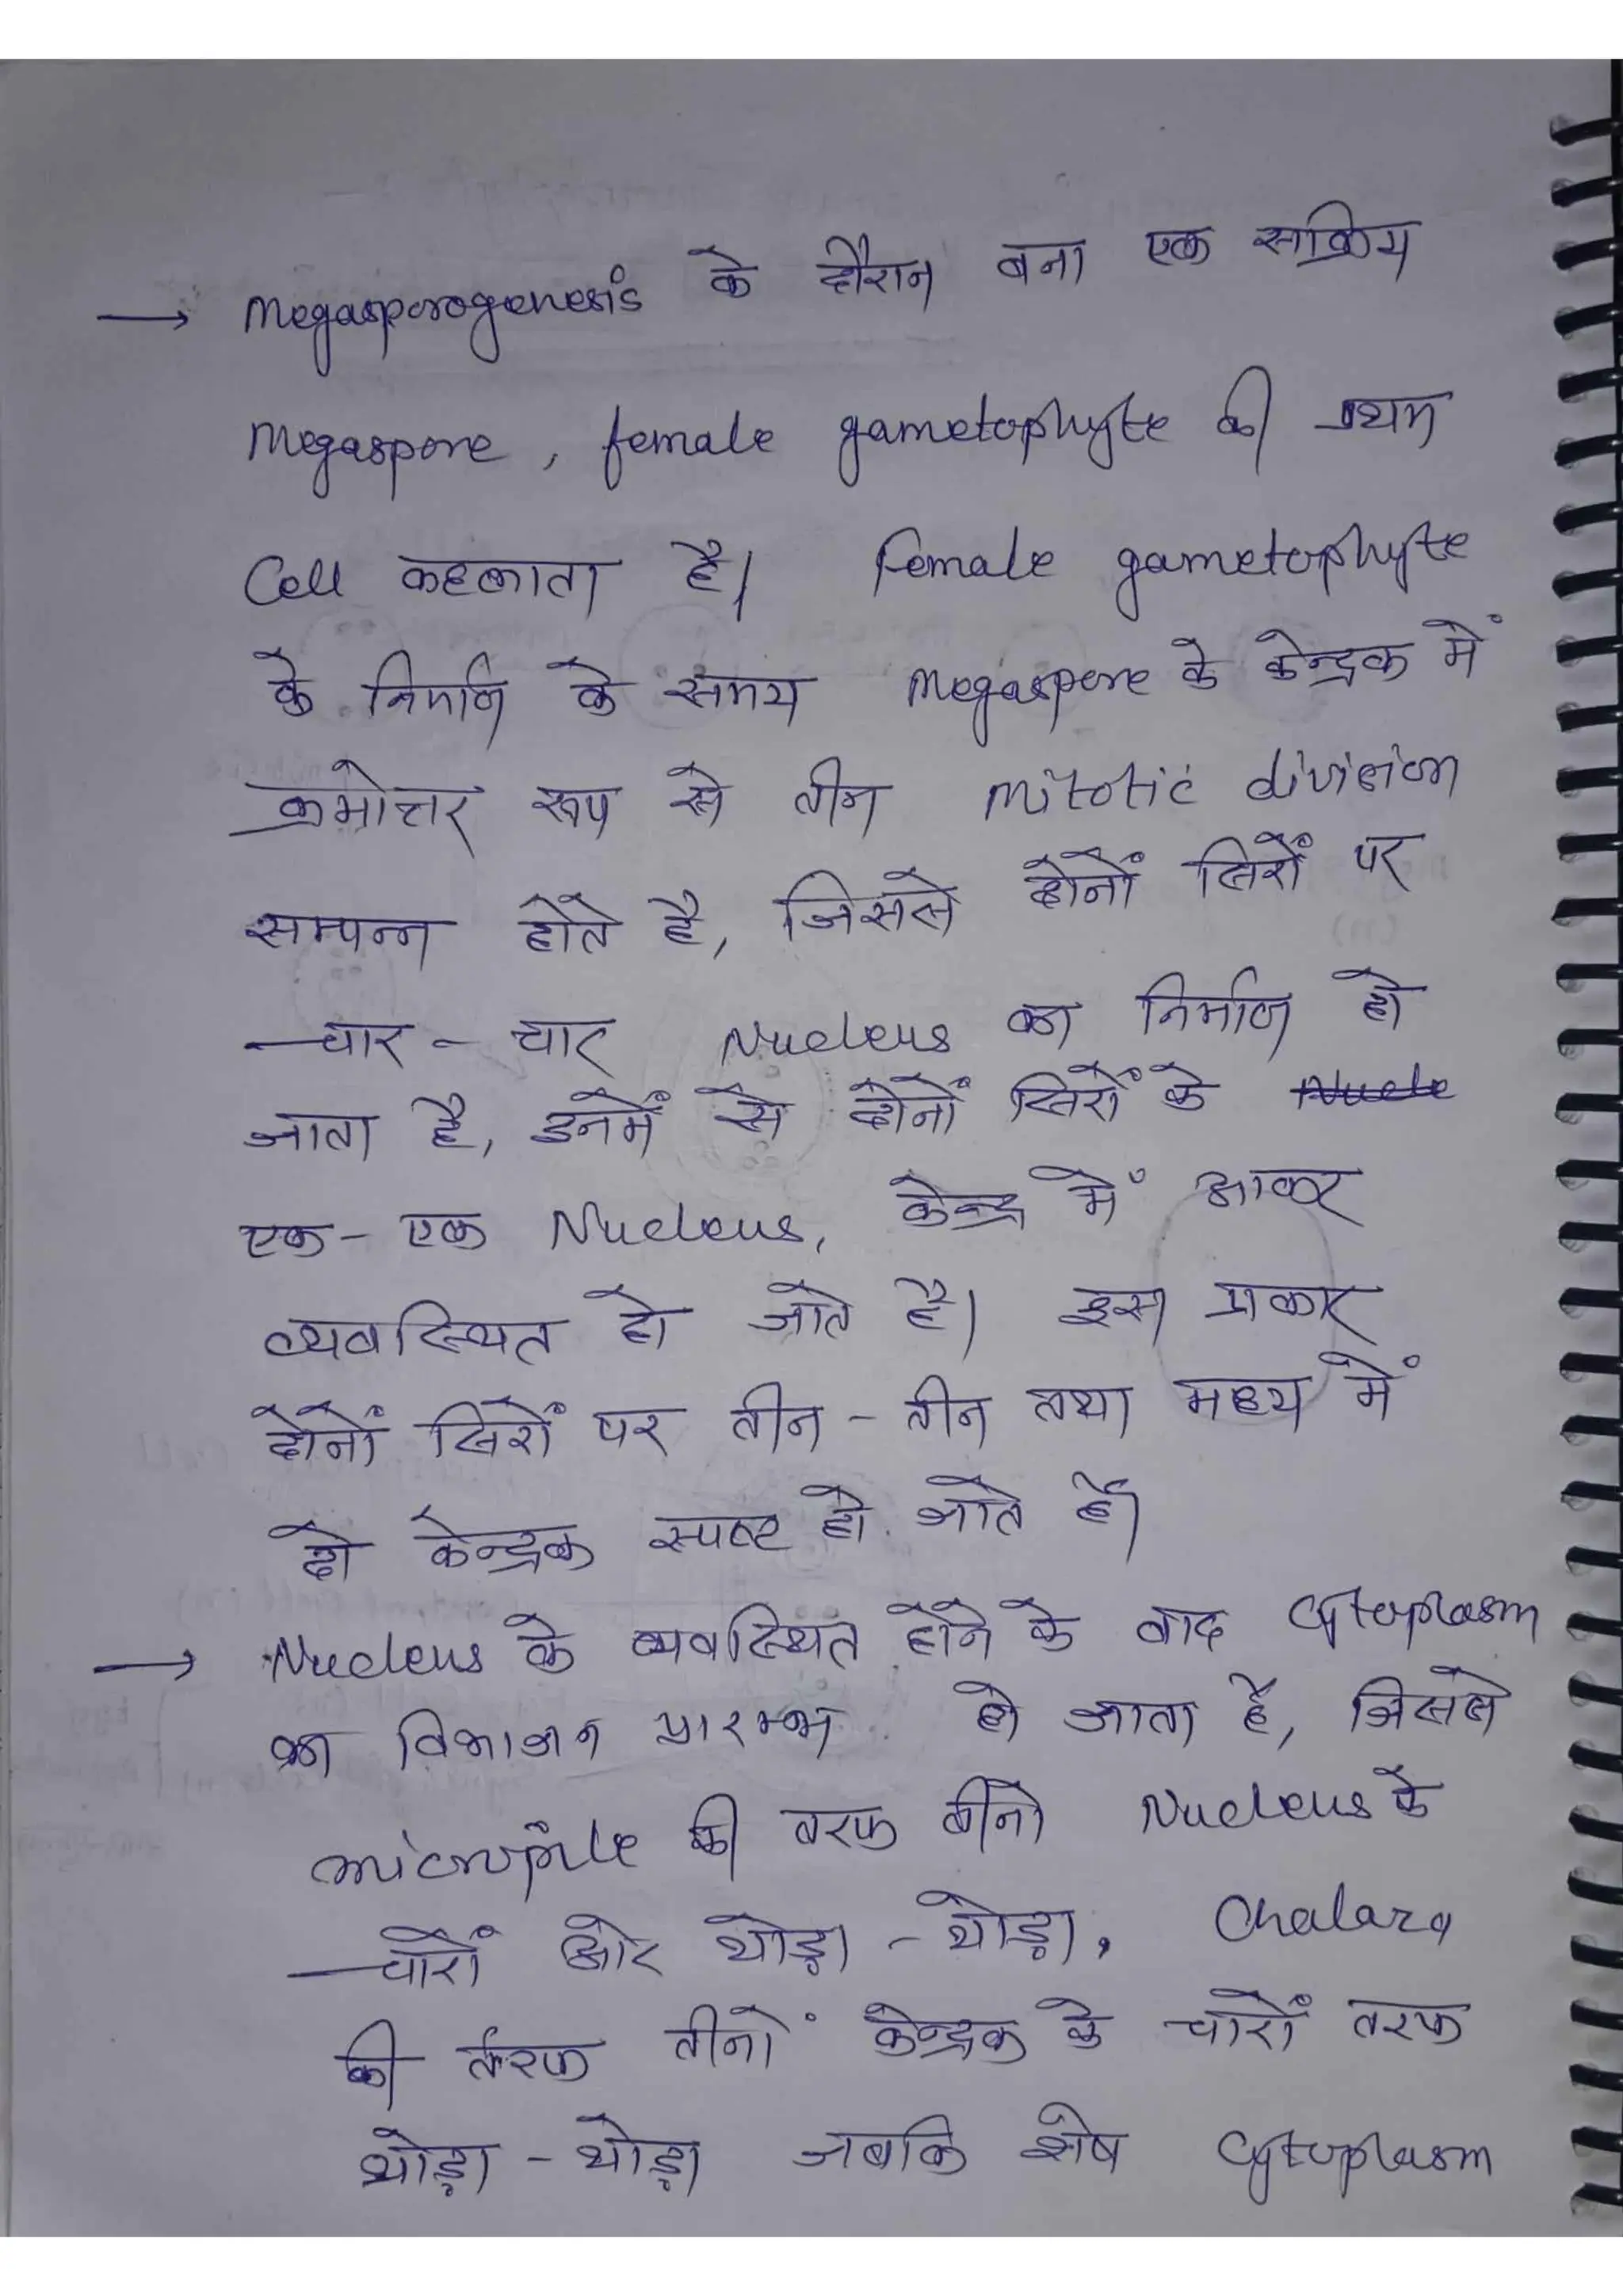 → Megasporogenesis के दौरान बना एक सक्रिय
Megaspore, female gametophyte की प्रथम
Cell कहलाता है। Female gametophyte
के निर्माण के समय megaspore के केन्द्रक में
क्रमोत्तर रूप से तीन mitotic division
सम्पन्न होते है, जिससे दोनों सिरों पर
चार - चार Nucleus का निर्माण हो
जाता है, इनमें से दोनों सिरों के Nucle
एक - एक Nucleus, केन्द्र में आकर
व्यवस्थित हो जाते है। इस प्रकार
दोनों सिरों पर तीन - तीन तथा मध्य में
दो केन्द्रक स्पष्ट हो जाते है।
→ Nucleus के व्यवस्थित होने के बाद Cytoplasm
का विभाजन प्रारम्भ हो जाता है, जिससे
micropile की तरफ तीनो Nucleus के
चारों ओर थोड़ा - थोड़ा, Chalaza
की तरफ तीनों केन्द्रक के चारों तरफ
थोड़ा - थोड़ा जबकि शेष Cytoplasm